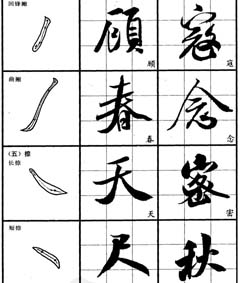 回锋撇
顾 寇
顾 寇
曲撇
春 念
春 念
（五）捺
长捺
天 密
天 密
短捺
尺 秋